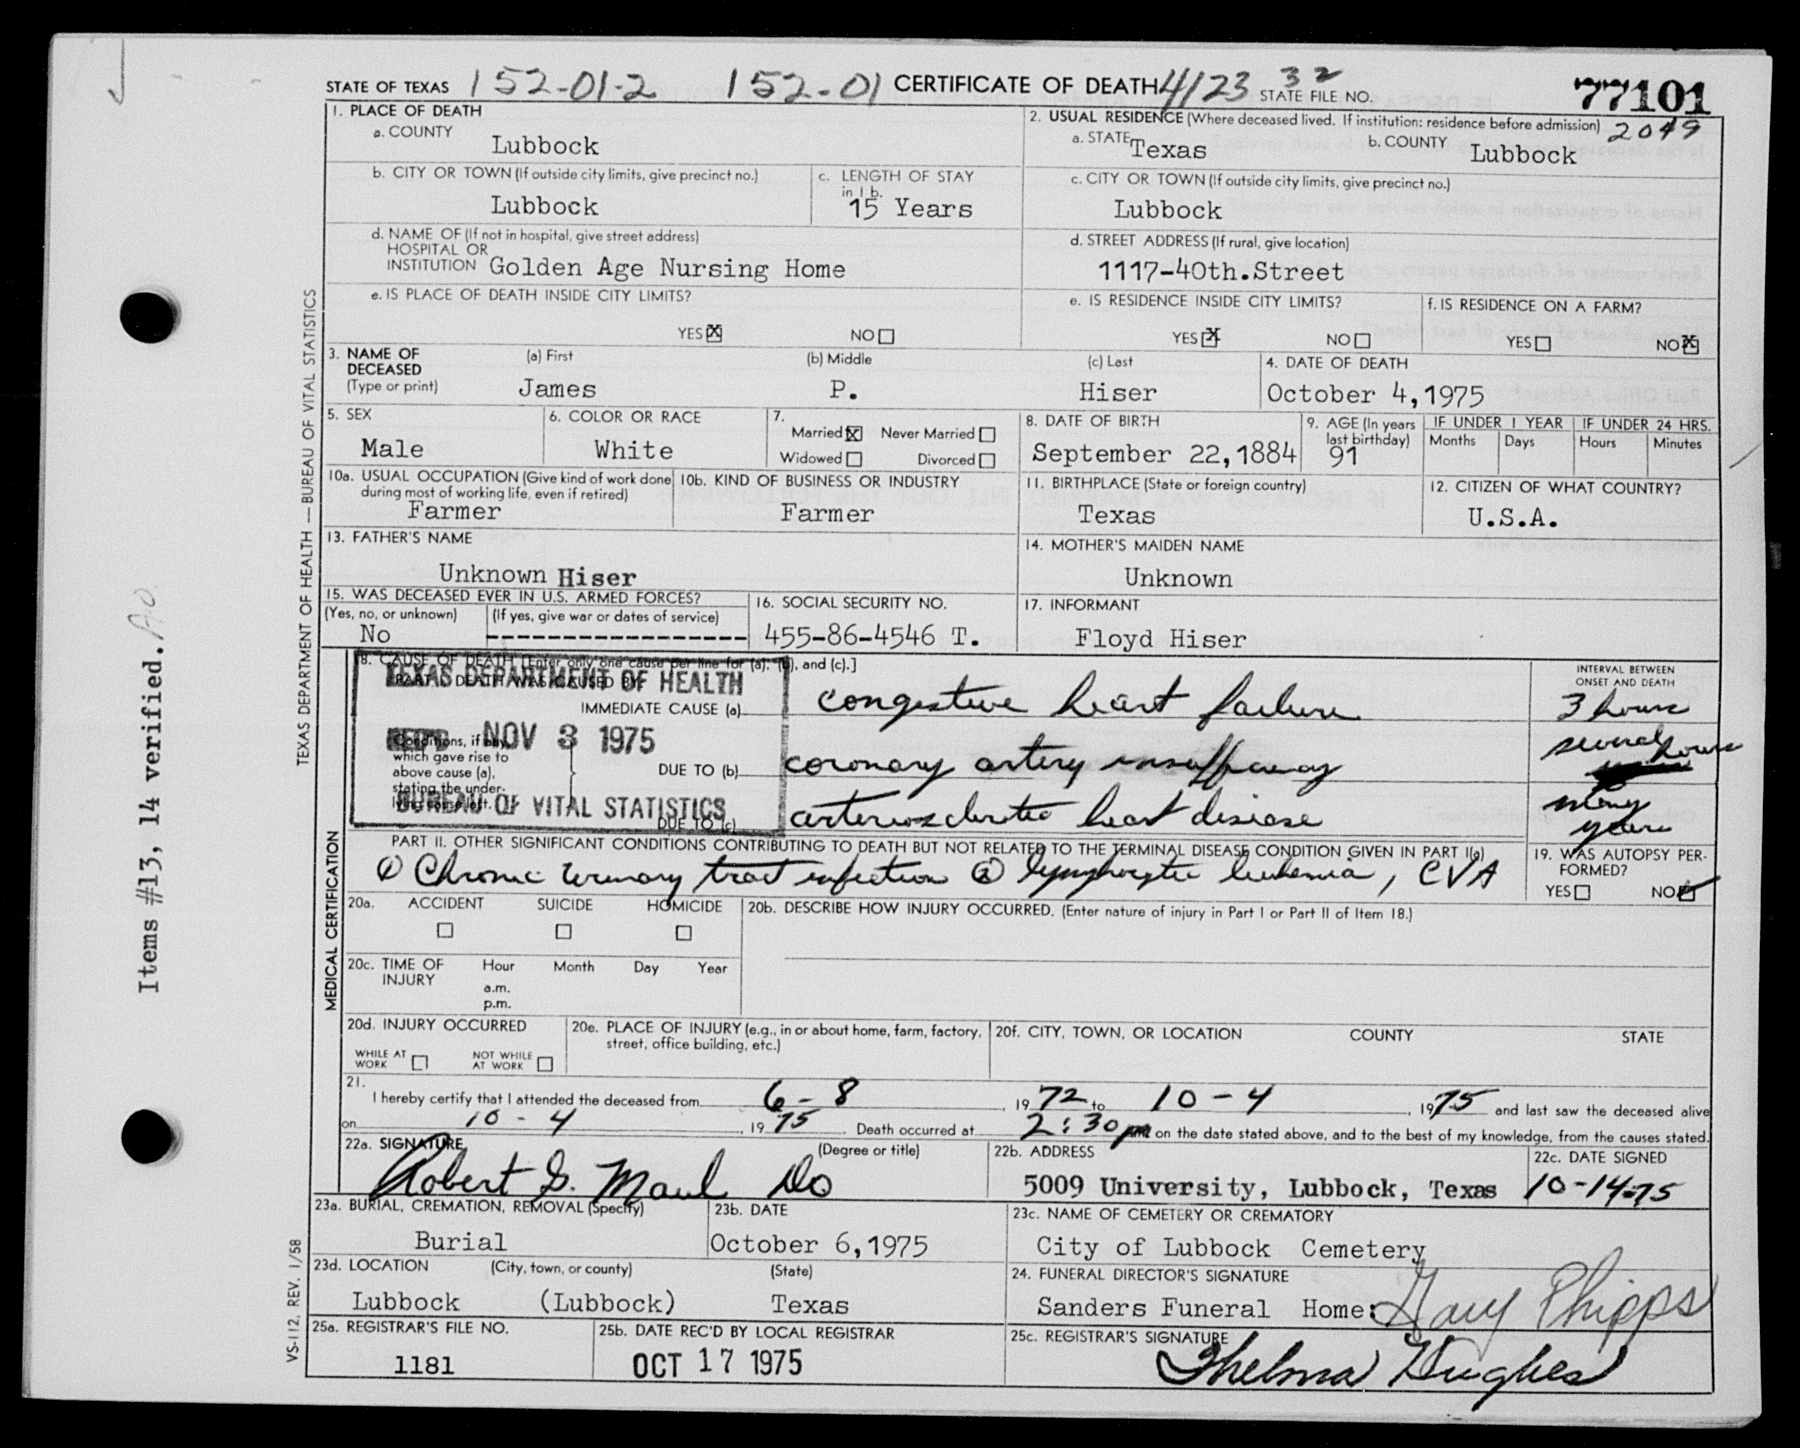 STATE OF TEXAS 152-01-2 152-01 CERTIFICATE OF DEATH 4123 32 STATE FILE NO. 77101
2049
1. PLACE OF DEATH
a. COUNTY
Lubbock
2. USUAL RESIDENCE (Where deceased lived. If institution: residence before admission)
a. STATE Texas b. COUNTY Lubbock
b. CITY OR TOWN (If outside city limits, give precinct no.)
Lubbock
c. LENGTH OF STAY
in 1 b.
15 Years
c. CITY OR TOWN (If outside city limits, give precinct no.)
Lubbock
d. NAME OF (If not in hospital, give street address)
HOSPITAL OR
INSTITUTION Golden Age Nursing Home
d. STREET ADDRESS (If rural, give location)
1117-40th.Street
e. IS PLACE OF DEATH INSIDE CITY LIMITS?
YES X NO
e. IS RESIDENCE INSIDE CITY LIMITS?
YES X NO
f. IS RESIDENCE ON A FARM?
YES NO X
3. NAME OF
DECEASED
(Type or print)
(a) First
James
(b) Middle
P.
(c) Last
Hiser
4. DATE OF DEATH
October 4,1975
5. SEX
Male
6. COLOR OR RACE
White
7.
Married X Never Married
Widowed Divorced
8. DATE OF BIRTH
September 22,1884
9. AGE (In years
last birthday)
91
IF UNDER 1 YEAR
Months Days
IF UNDER 24 HRS.
Hours Minutes
10a. USUAL OCCUPATION (Give kind of work done
during most of working life, even if retired)
Farmer
10b. KIND OF BUSINESS OR INDUSTRY
Farmer
11. BIRTHPLACE (State or foreign country)
Texas
12. CITIZEN OF WHAT COUNTRY?
U.S.A.
13. FATHER'S NAME
Unknown Hiser
14. MOTHER'S MAIDEN NAME
Unknown
15. WAS DECEASED EVER IN U.S. ARMED FORCES?
(Yes, no, or unknown) (If yes, give war or dates of service)
No
16. SOCIAL SECURITY NO.
455-86-4546 T.
17. INFORMANT
Floyd Hiser
18. CAUSE OF DEATH [Enter only one cause per line for (a), (b), and (c).]
PART I. DEATH WAS CAUSED BY:
TEXAS DEPARTMENT OF HEALTH
REC'D NOV 3 1975
BUREAU OF VITAL STATISTICS
INTERVAL BETWEEN
ONSET AND DEATH
IMMEDIATE CAUSE (a) congestive heart failure 3 hours
Conditions, if any,
which gave rise to
above cause (a),
stating the under-
lying cause last.
DUE TO (b) coronary artery insufficiency several hours
DUE TO (c) arteriosclerotic heart disease many years
PART II. OTHER SIGNIFICANT CONDITIONS CONTRIBUTING TO DEATH BUT NOT RELATED TO THE TERMINAL DISEASE CONDITION GIVEN IN PART I(a)
① Chronic urinary tract infection ② lymphocytic leukemia, CVA
19. WAS AUTOPSY PER-
FORMED?
YES NO
20a. ACCIDENT SUICIDE HOMICIDE
20b. DESCRIBE HOW INJURY OCCURRED. (Enter nature of injury in Part I or Part II of Item 18.)
20c. TIME OF
INJURY
Hour Month Day Year
a.m.
p.m.
20d. INJURY OCCURRED
WHILE AT
WORK
NOT WHILE
AT WORK
20e. PLACE OF INJURY (e.g., in or about home, farm, factory,
street, office building, etc.)
20f. CITY, TOWN, OR LOCATION COUNTY STATE
21.
I hereby certify that I attended the deceased from 6-8, 1972 to 10-4, 1975 and last saw the deceased alive
on 10-4, 1975. Death occurred at 2:30 pm on the date stated above, and to the best of my knowledge, from the causes stated.
22a. SIGNATURE (Degree or title)
Robert G. Maul DO
22b. ADDRESS
5009 University, Lubbock, Texas
22c. DATE SIGNED
10-14-75
23a. BURIAL, CREMATION, REMOVAL (Specify)
Burial
23b. DATE
October 6,1975
23c. NAME OF CEMETERY OR CREMATORY
City of Lubbock Cemetery
23d. LOCATION (City, town, or county) (State)
Lubbock (Lubbock) Texas
24. FUNERAL DIRECTOR'S SIGNATURE
Sanders Funeral Home: Gary Phipps
25a. REGISTRAR'S FILE NO.
1181
25b. DATE REC'D BY LOCAL REGISTRAR
OCT 17 1975
25c. REGISTRAR'S SIGNATURE
Thelma Hughes
TEXAS DEPARTMENT OF HEALTH —BUREAU OF VITAL STATISTICS
MEDICAL CERTIFICATION
VS-112, REV. 1/58
Items #13, 14 verified.